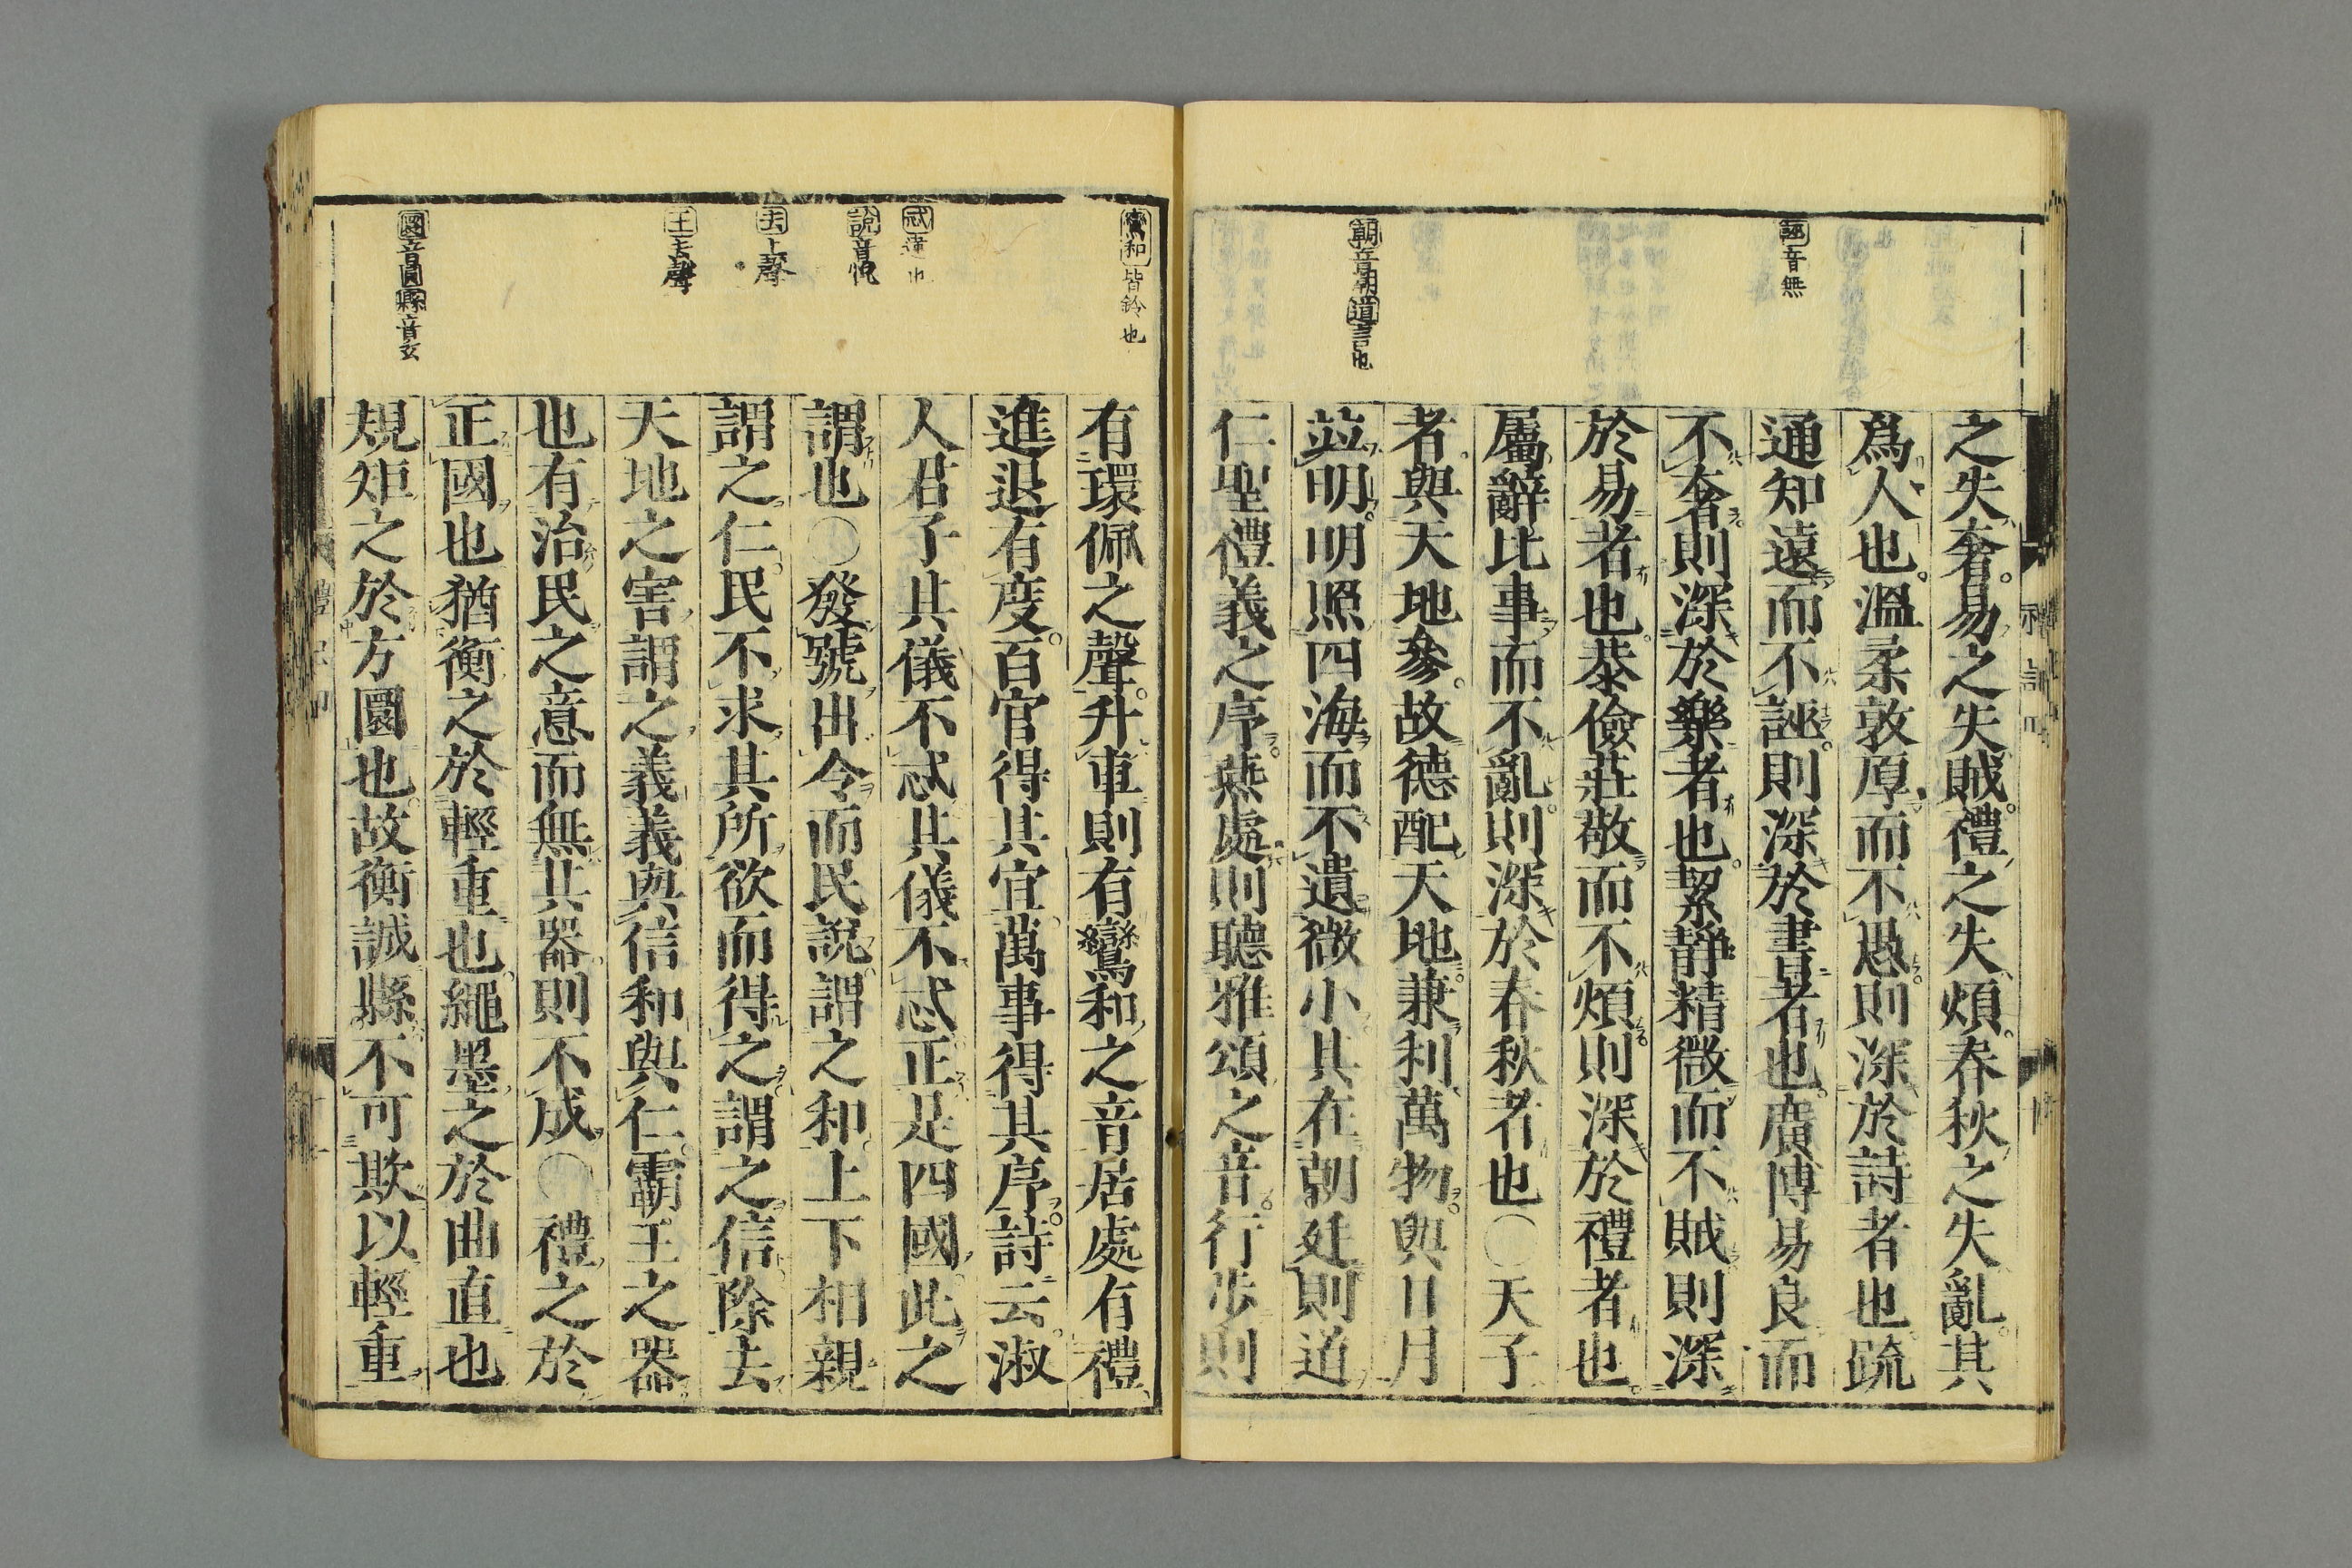 誣音無
朝音潮道言也
之失奢易之失賊禮之失煩春秋之失亂其
爲人也溫柔敦厚而不愚則深於詩者也疏
通知遠而不誣則深於書者也廣博易良而
不奢則深於樂者也絜靜精微而不賊則深
於易者也恭儉莊敬而不煩則深於禮者也
屬辭比事而不亂則深於春秋者也○天子
者與天地參故德配天地兼利萬物與日月
並明明照四海而不遺微小其在朝廷則道
仁聖禮義之序燕處則聽雅頌之音行步則
鸞和皆鈴也
忒違也
說音悅
去上聲
王去聲
圜音圓縣音玄
有環佩之聲升車則有鸞和之音居處有禮
進退有度百官得其宜萬事得其序詩云淑
人君子其儀不忒其儀不忒正是四國此之
謂也○發號出令而民說謂之和上下相親
謂之仁民不求其所欲而得之謂之信除去
天地之害謂之義義與信和與仁霸王之器
也有治民之意而無其器則不成○禮之於
正國也猶衡之於輕重也繩墨之於曲直也
規矩之於方圜也故衡誠縣不可欺以輕重